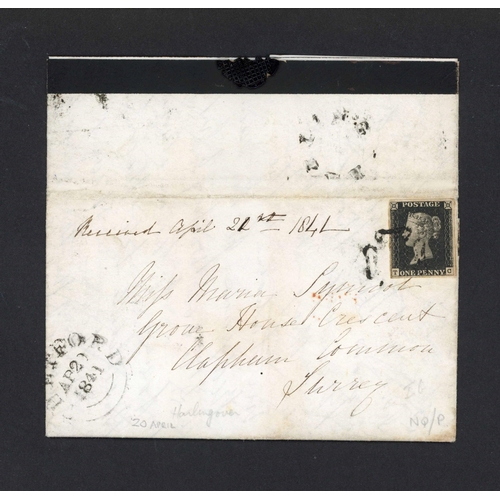 Received April 21st 1841
POSTAGE
ONE PENNY
T G
Miss Maria
Grove House Crescent
Clapham Common
Surrey
RETFORD
AP 20
1841
20 APRIL
NO/P